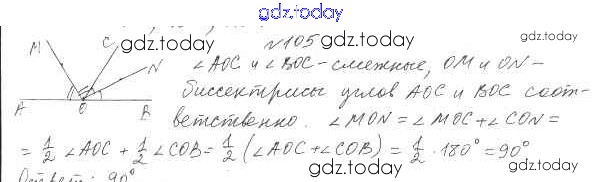 gdz.today
M
C
gdz.today
N105
gdz.today
N
∠AOC и ∠BOC - смежные, OM и ON -
A
O
B
биссектрисы углов AOC и BOC соот-
ветственно. ∠MON = ∠MOC + ∠CON =
= 1/2 ∠AOC + 1/2 ∠COB = 1/2 (∠AOC + ∠COB) = 1/2 · 180° = 90°
gdz.today
gdz.today
Ответ: 90°